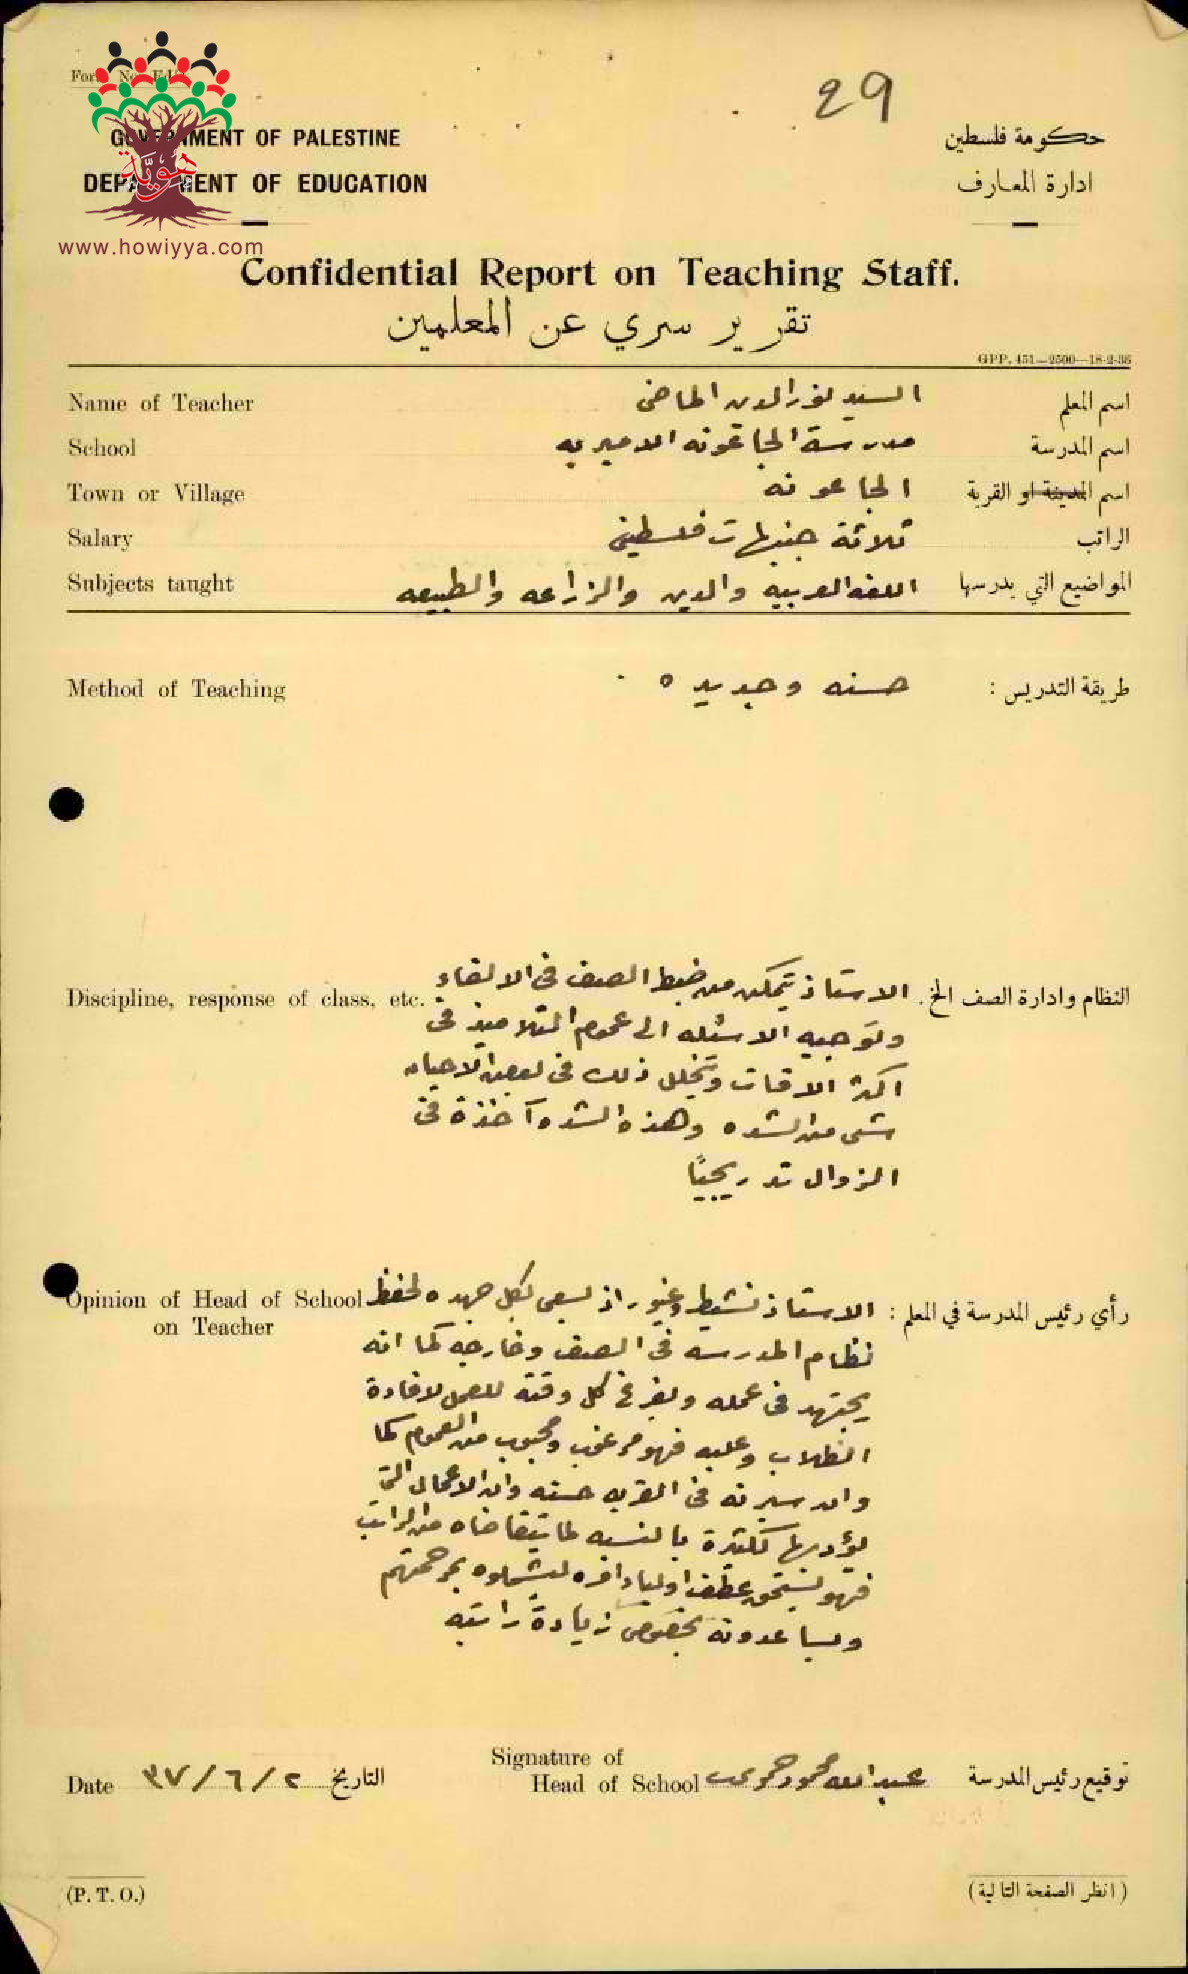 For No Ed
29
GOVERNMENT OF PALESTINE
حكومة فلسطين
DEPARTMENT OF EDUCATION
ادارة المعارف
هوية
www.howiyya.com
Confidential Report on Teaching Staff.
تقرير سري عن المعلمين
GPP. 451—2500—18-2-36
Name of Teacher السيد نور الدين الماضي اسم المعلم
School مدرسة الجاعونه الاميريه اسم المدرسة
Town or Village الجاعونه اسم المدينة او القرية
Salary ثلاثة جنيهات فلسطيني الراتب
Subjects taught اللغه العربيه والدين والزراعه والطبيعه المواضيع التي يدرسها
Method of Teaching حسنه وجديده . طريقة التدريس :
Discipline, response of class, etc. الاستاذ يتمكن من ضبط الصف في الالقاء النظام وادارة الصف الخ .
وتوجيه الاسئله الى عموم التلاميذ في
اكثر الاوقات ويتخلل ذلك في بعض الاحيان
شيء من الشده وهذه الشده آخذة في
الزوال تدريجيًا
Opinion of Head of School الاستاذ نشيط وغيور اذ يسعى بكل جهده لحفظ رأي رئيس المدرسة في المعلم :
on Teacher
نظام المدرسه في الصف وخارجه كما انه
يجتهد في عمله ويفرغ كل وقته للعمل لافادة
الطلاب وعليه فهو مرغوب ومحبوب من العموم كما
وان سيرته في القريه حسنه وان الاعمال التي
يؤديها كثيرة بالنسبه لما يتقاضاه من الراتب
فهو يستحق عطف اولياء امره ليشملوه بمرحمتهم
ويساعدونه بخصوص زيادة راتبه
Date ٣٧/٦/٢ التاريخ
Signature of
Head of School عبد الله محمود توقيع رئيس المدرسة
(P. T. O.)
( انظر الصفحة التالية )